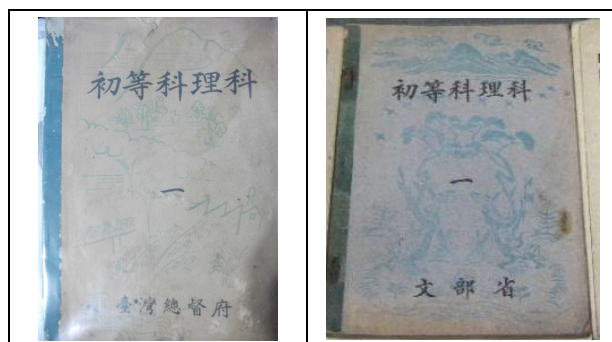 初等科理科
一
臺灣總督府
初等科理科
一
文部省